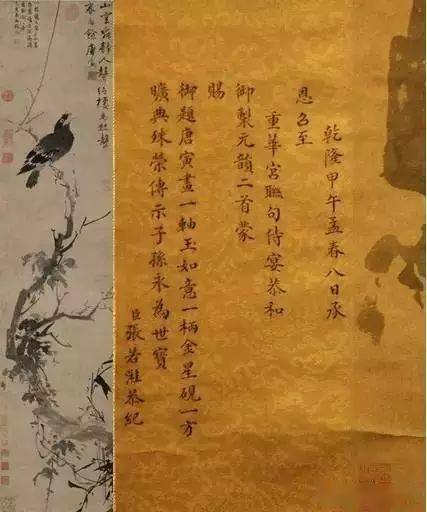 乾隆甲午孟春八日承
恩召至
重華宮聯句侍宴恭和
御製元韻二首蒙
賜
御題唐寅畫一軸玉如意一柄金星硯一方
曠典殊榮傳示子孫永為世寶
臣張若溎恭紀
山空寂靜人聲絕